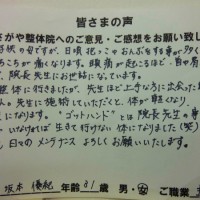 皆さまの声
さがや整体院へのご意見・ご感想をお願い致し
の母ですが、日頃抱っこやおんぶをする事が多く
痛くなります。頭痛が起こるほど、首や肩
院長先生にお世話になっています。
に行きましたが、先生ほど上手な方に出会った
先生に施術していただくと、体が軽くなり
体になります。"ゴッドハンド"とは院長先生の事
いなければ生きて行けない体になりました(笑)
日々のメンテナンスよろしくお願いいたします。
坂本 年齢 31 歳 男・女 ご職業